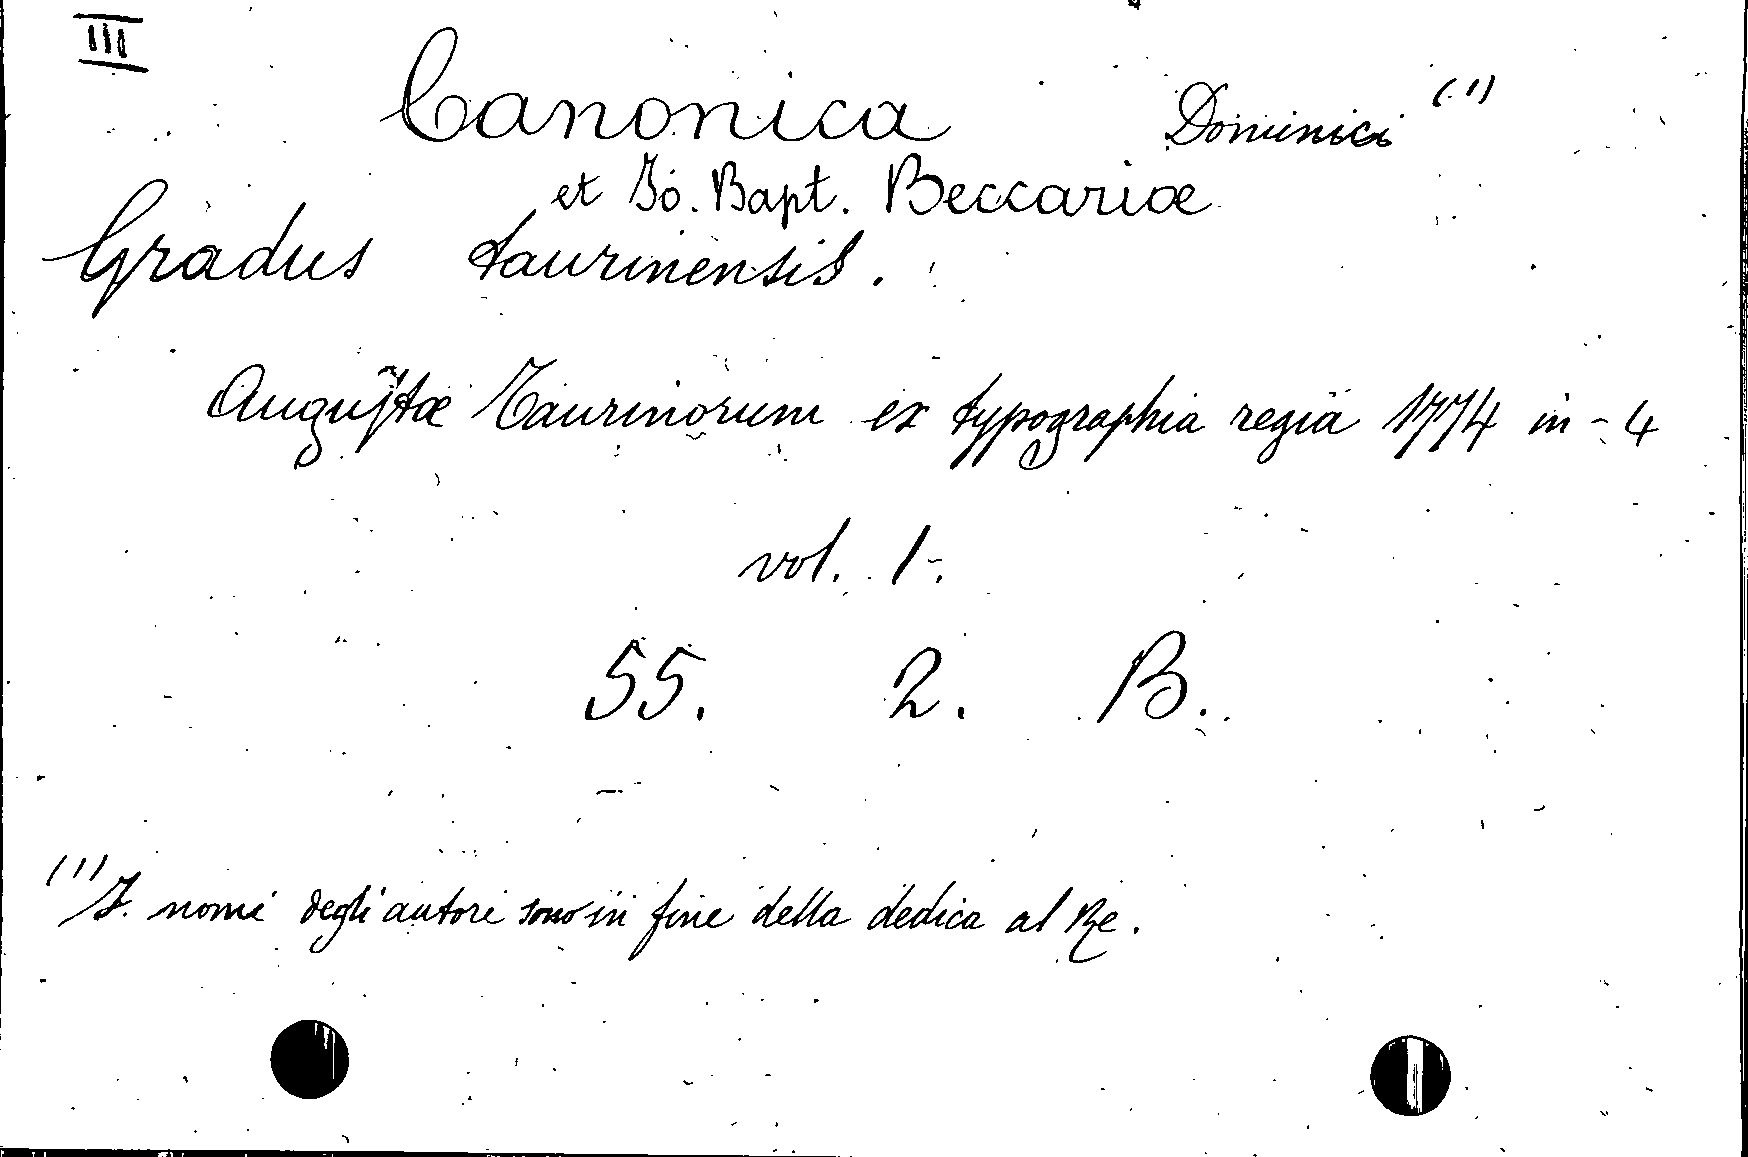 III
Canonica Dominici (1)
et Io. Bapt. Beccariæ
Gradus taurinensis.
Augustæ Taurinorum ex typographia regia 1774 in-4
vol. 1.
55. 2. B.
(1) I nomi degli autori sono in fine della dedica al Re.